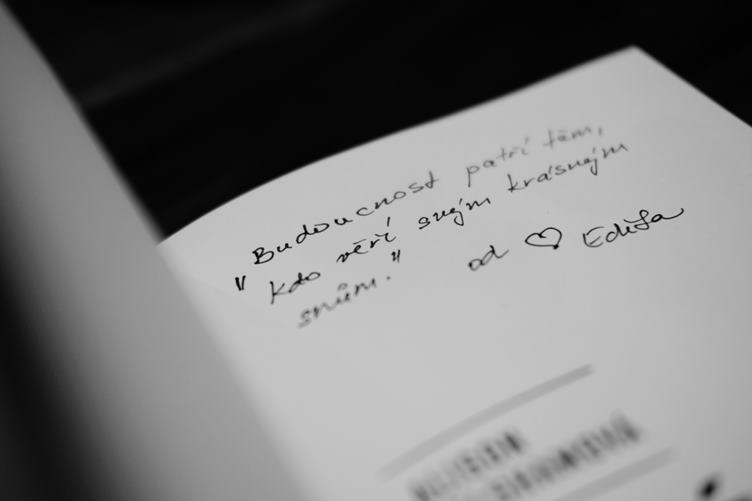 "Budoucnost patří těm,
kdo věří svým krásným
snům." od ♡ Edita